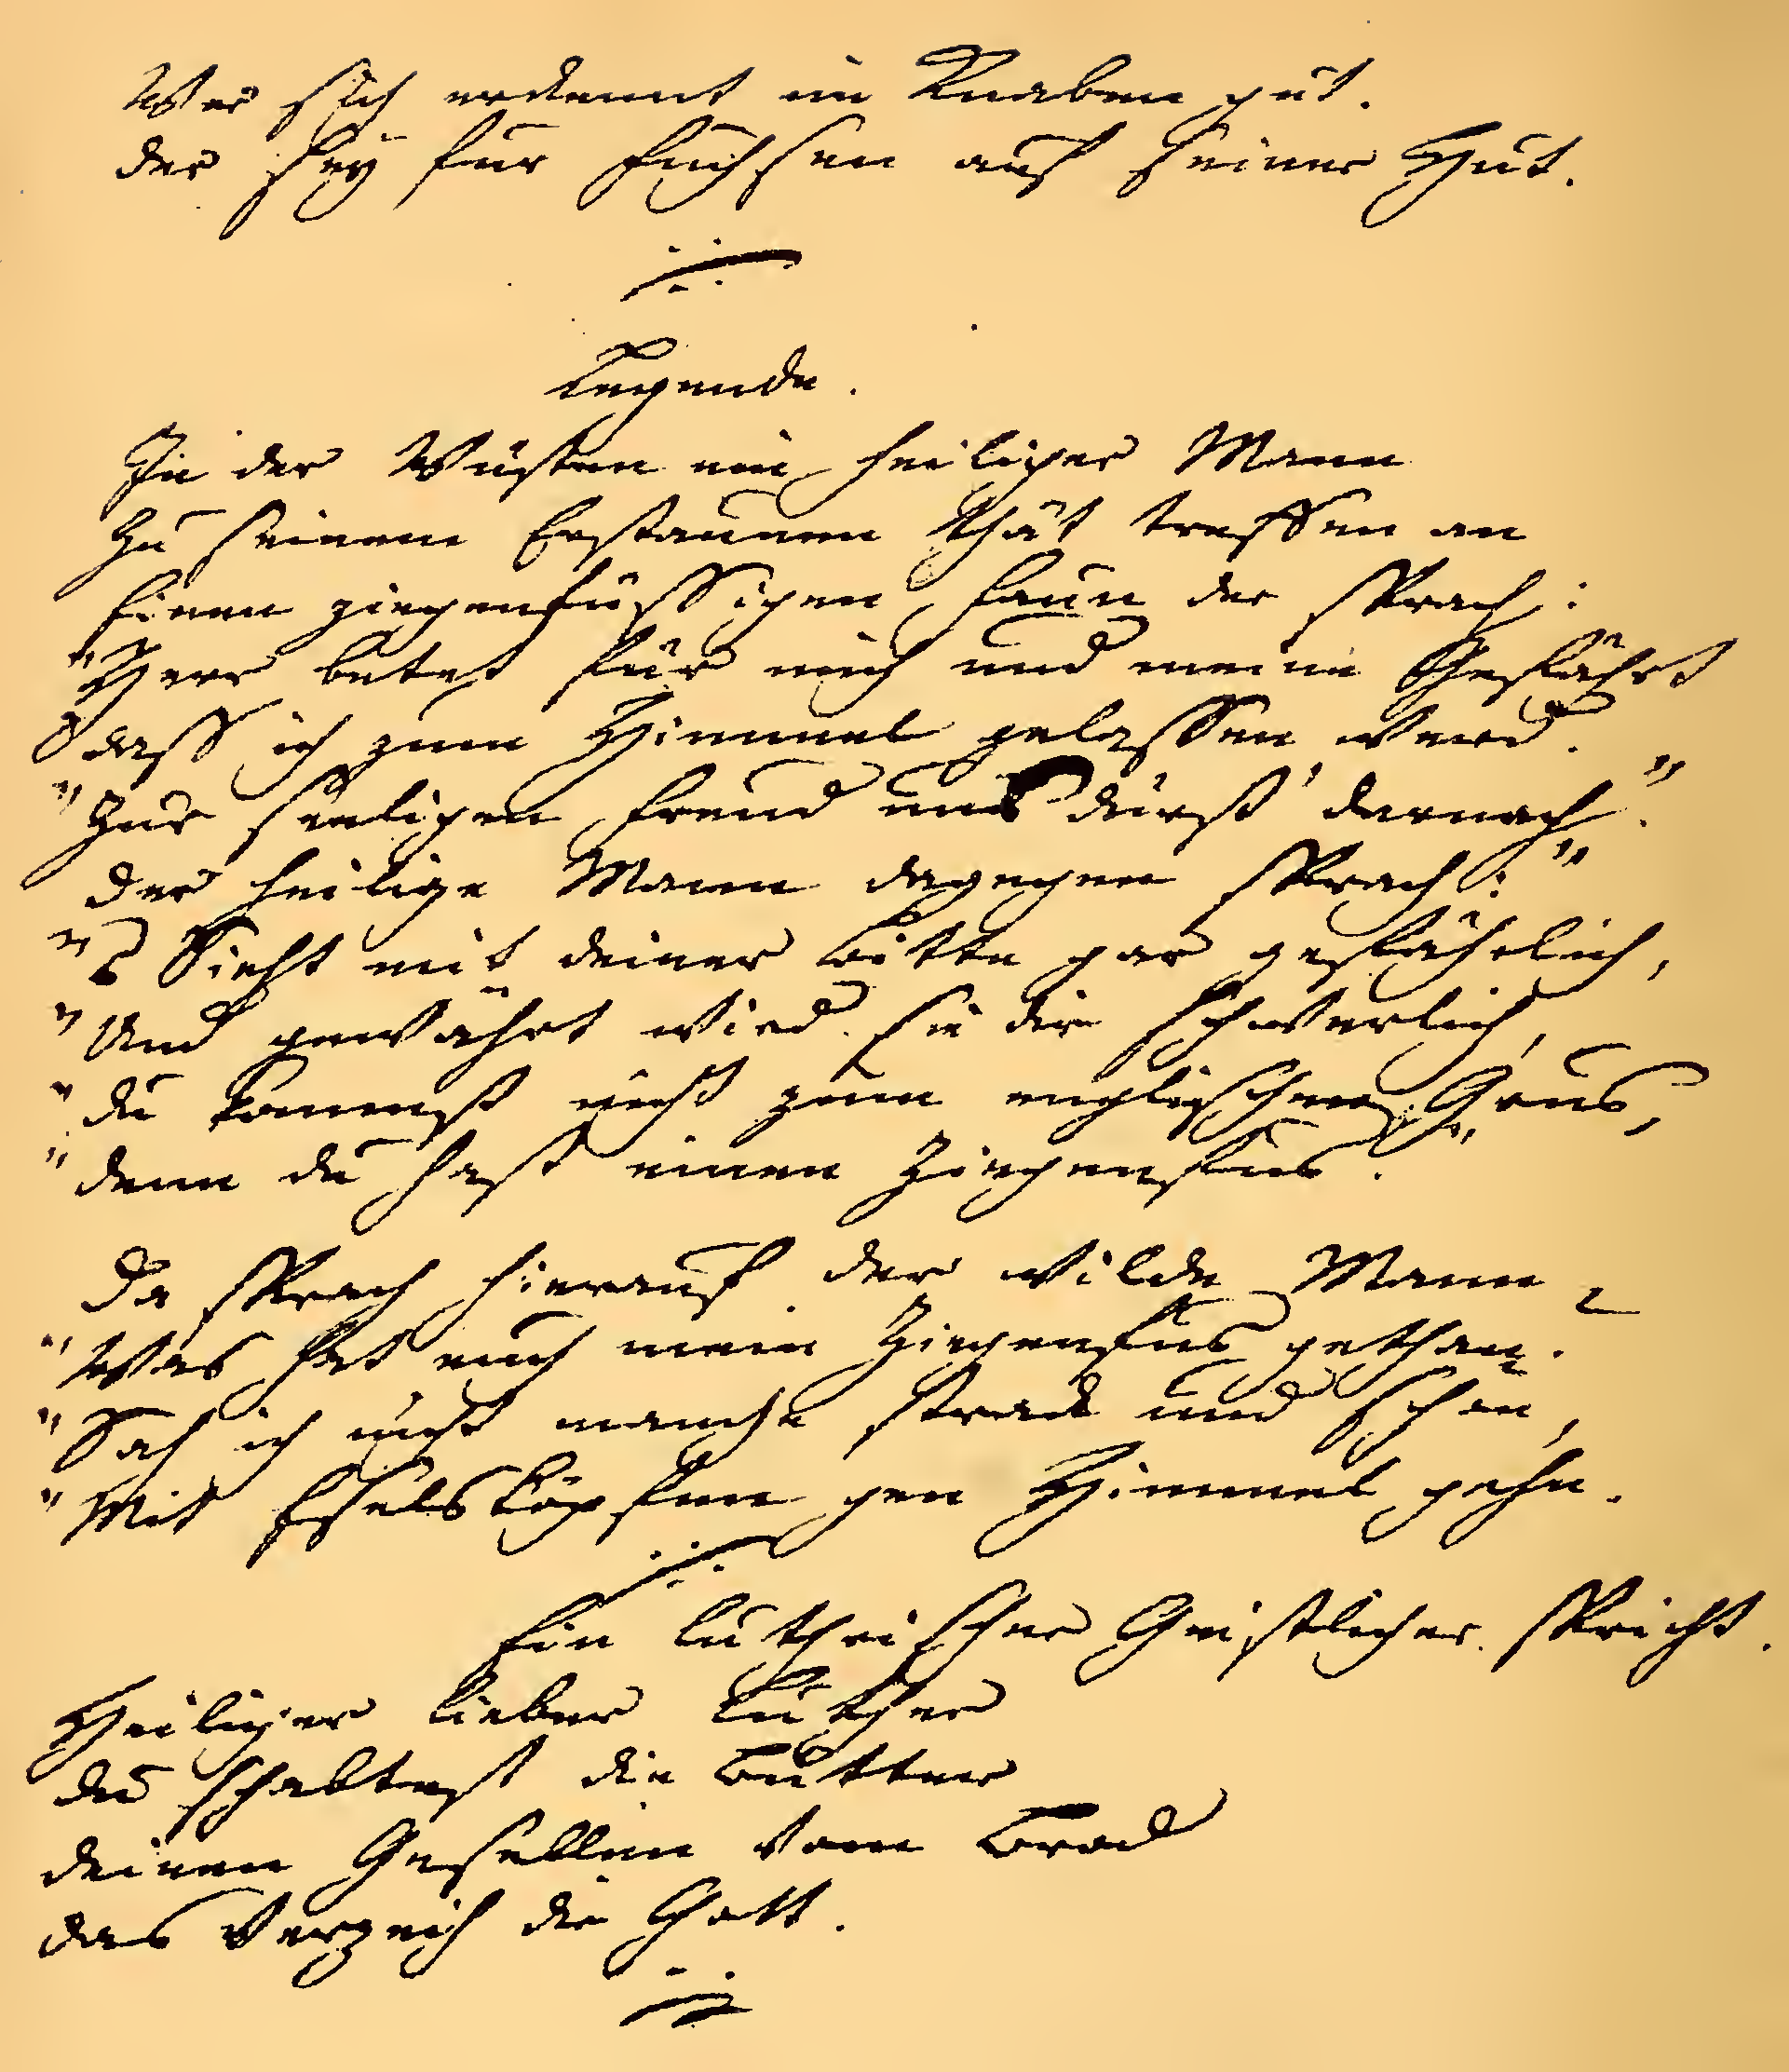 Wer sich erkennt im Knaben gut.
der sey fur Fuchsen auf seiner Hut.
Legende.
In der Wüsten ein heiliger Mann
Zu seinem Erstaunen thät treffen an
Einen ziegenfüssigen Faun der sprach:
"Herr betet für mich und meine Gefährt
"dass ich zum Himmel gelassen werd.
"Zur seeligen Freud uns dürst' darnach."
Der heilige Mann dagegen sprach:"
"s Sieht mit deiner Bitte gar gefährlich,
"Und gewährt wird sie dir schwerlich,
"du kommst nicht zum englischen Grus,
"denn du hast einen Ziegenfus."
Da sprach hierauf der wilde Mann
"Was hat euch mein Ziegenfus gethan?
"Sah ich nicht manche strack und schön,
"Mit Eselsköpfen gen Himmel gehn.
Ein lutherischer Geistlicher spricht.
Heiliger lieber Luther
du schabtest die Butter
deinen Gesellen vom Brod
das verzeih dir Gott.